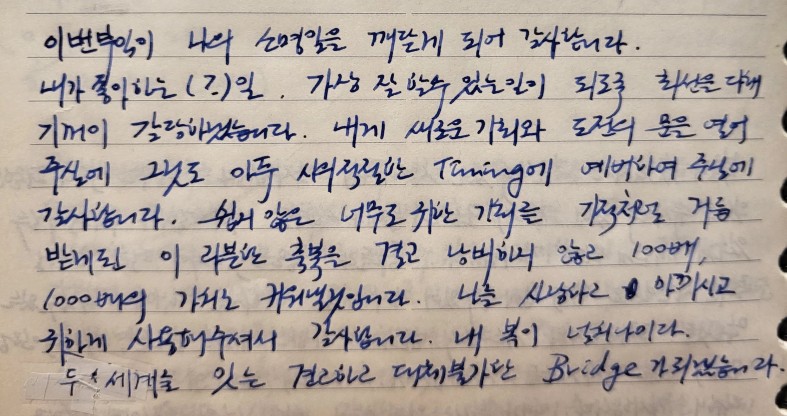 이번부임이 나의 소명임을 깨닫게 되어 감사합니다.
내가 좋아하는 일. 가장 잘 할수 있는일이 되도록 최선을 다해
기꺼이 감당하겠습니다. 내게 새로운 기회와 도전의 문을 열어
주심에 그것도 아주 시의적절한 Timing에 예비하여 주심에
감사합니다. 쉽지 않은 너무도 귀한 기회를 기적적으로 거듭
받게된 이 과분한 축복을 결코 낭비하지 않고 100배,
1000배의 가치로 키워낼것입니다. 나를 사랑하고 아끼시고
귀하게 사용해주셔서 감사합니다. 내 복이 넘치나이다.
두 세계를 잇는 견고하고 대체불가한 Bridge가 되겠습니다.